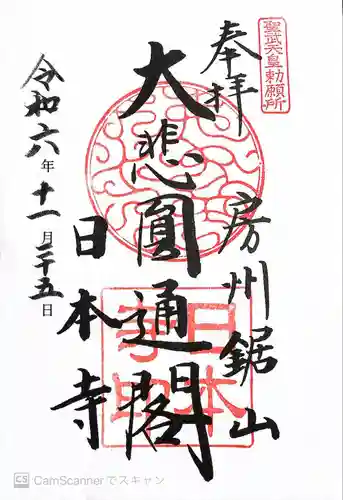 聖武天皇勅願所
奉拝
房州鋸山
大悲圓通閣
日本寺
令和六年十一月二十五日
CS CamScannerでスキャン